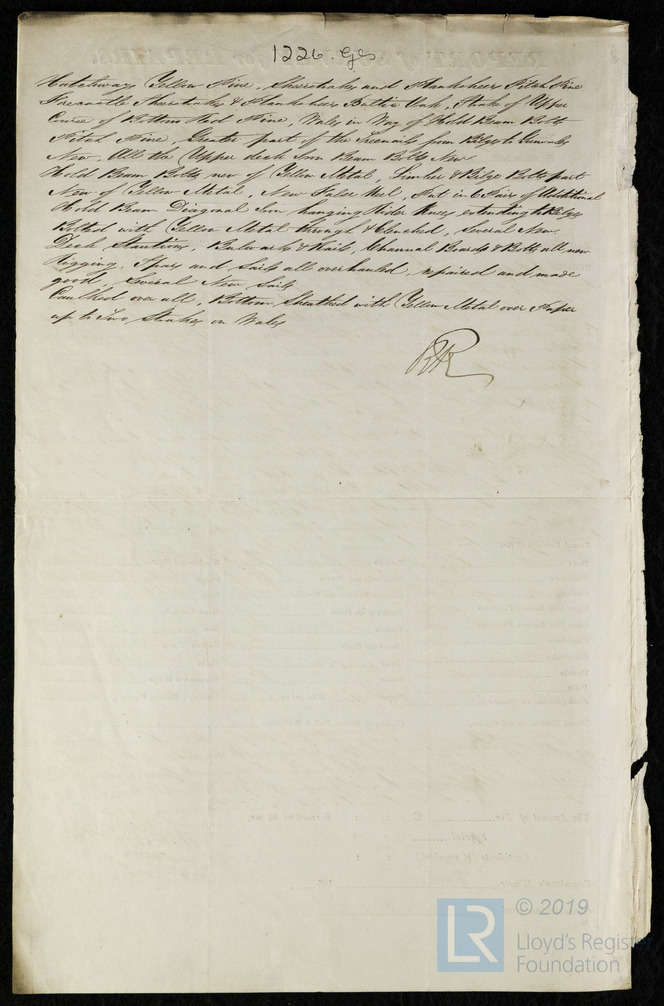 1226. Gls
Hatchways Yellow Pine, Sheerstrakes and Planksheers Pitch Pine
Forecastle Sheerstrakes & Planksheers Baltic Oak, Strake of Upper
Course of Bottom Red Pine, Wales in Way of Hold Beam Bolts
Pitch Pine, Greater part of the Treenails from Bilges to Gunwales
New, All the Upper deck Iron Beam Bolts New
Hold Beam Bolts new of Yellow Metal, Limber & Bilge Bolts part
New of Yellow Metal, New False Keel, Put in 6 Pairs of Additional
Hold Beam Diagonal Iron hanging Rider Knees extending to Bilges
Bolted with Yellow Metal through & Clenched, Several New
Deck Stantions, Bulwarks & Rails, Channel Boards & Bolts all new
Rigging, Spars and Sails all overhauled, repaired and made
good, Several New Sails
Caulked over all, Bottom Sheathed with Yellow Metal over Paper
up to Two Strakes on Wales
LR
© 2019
Lloyd's Register
Foundation